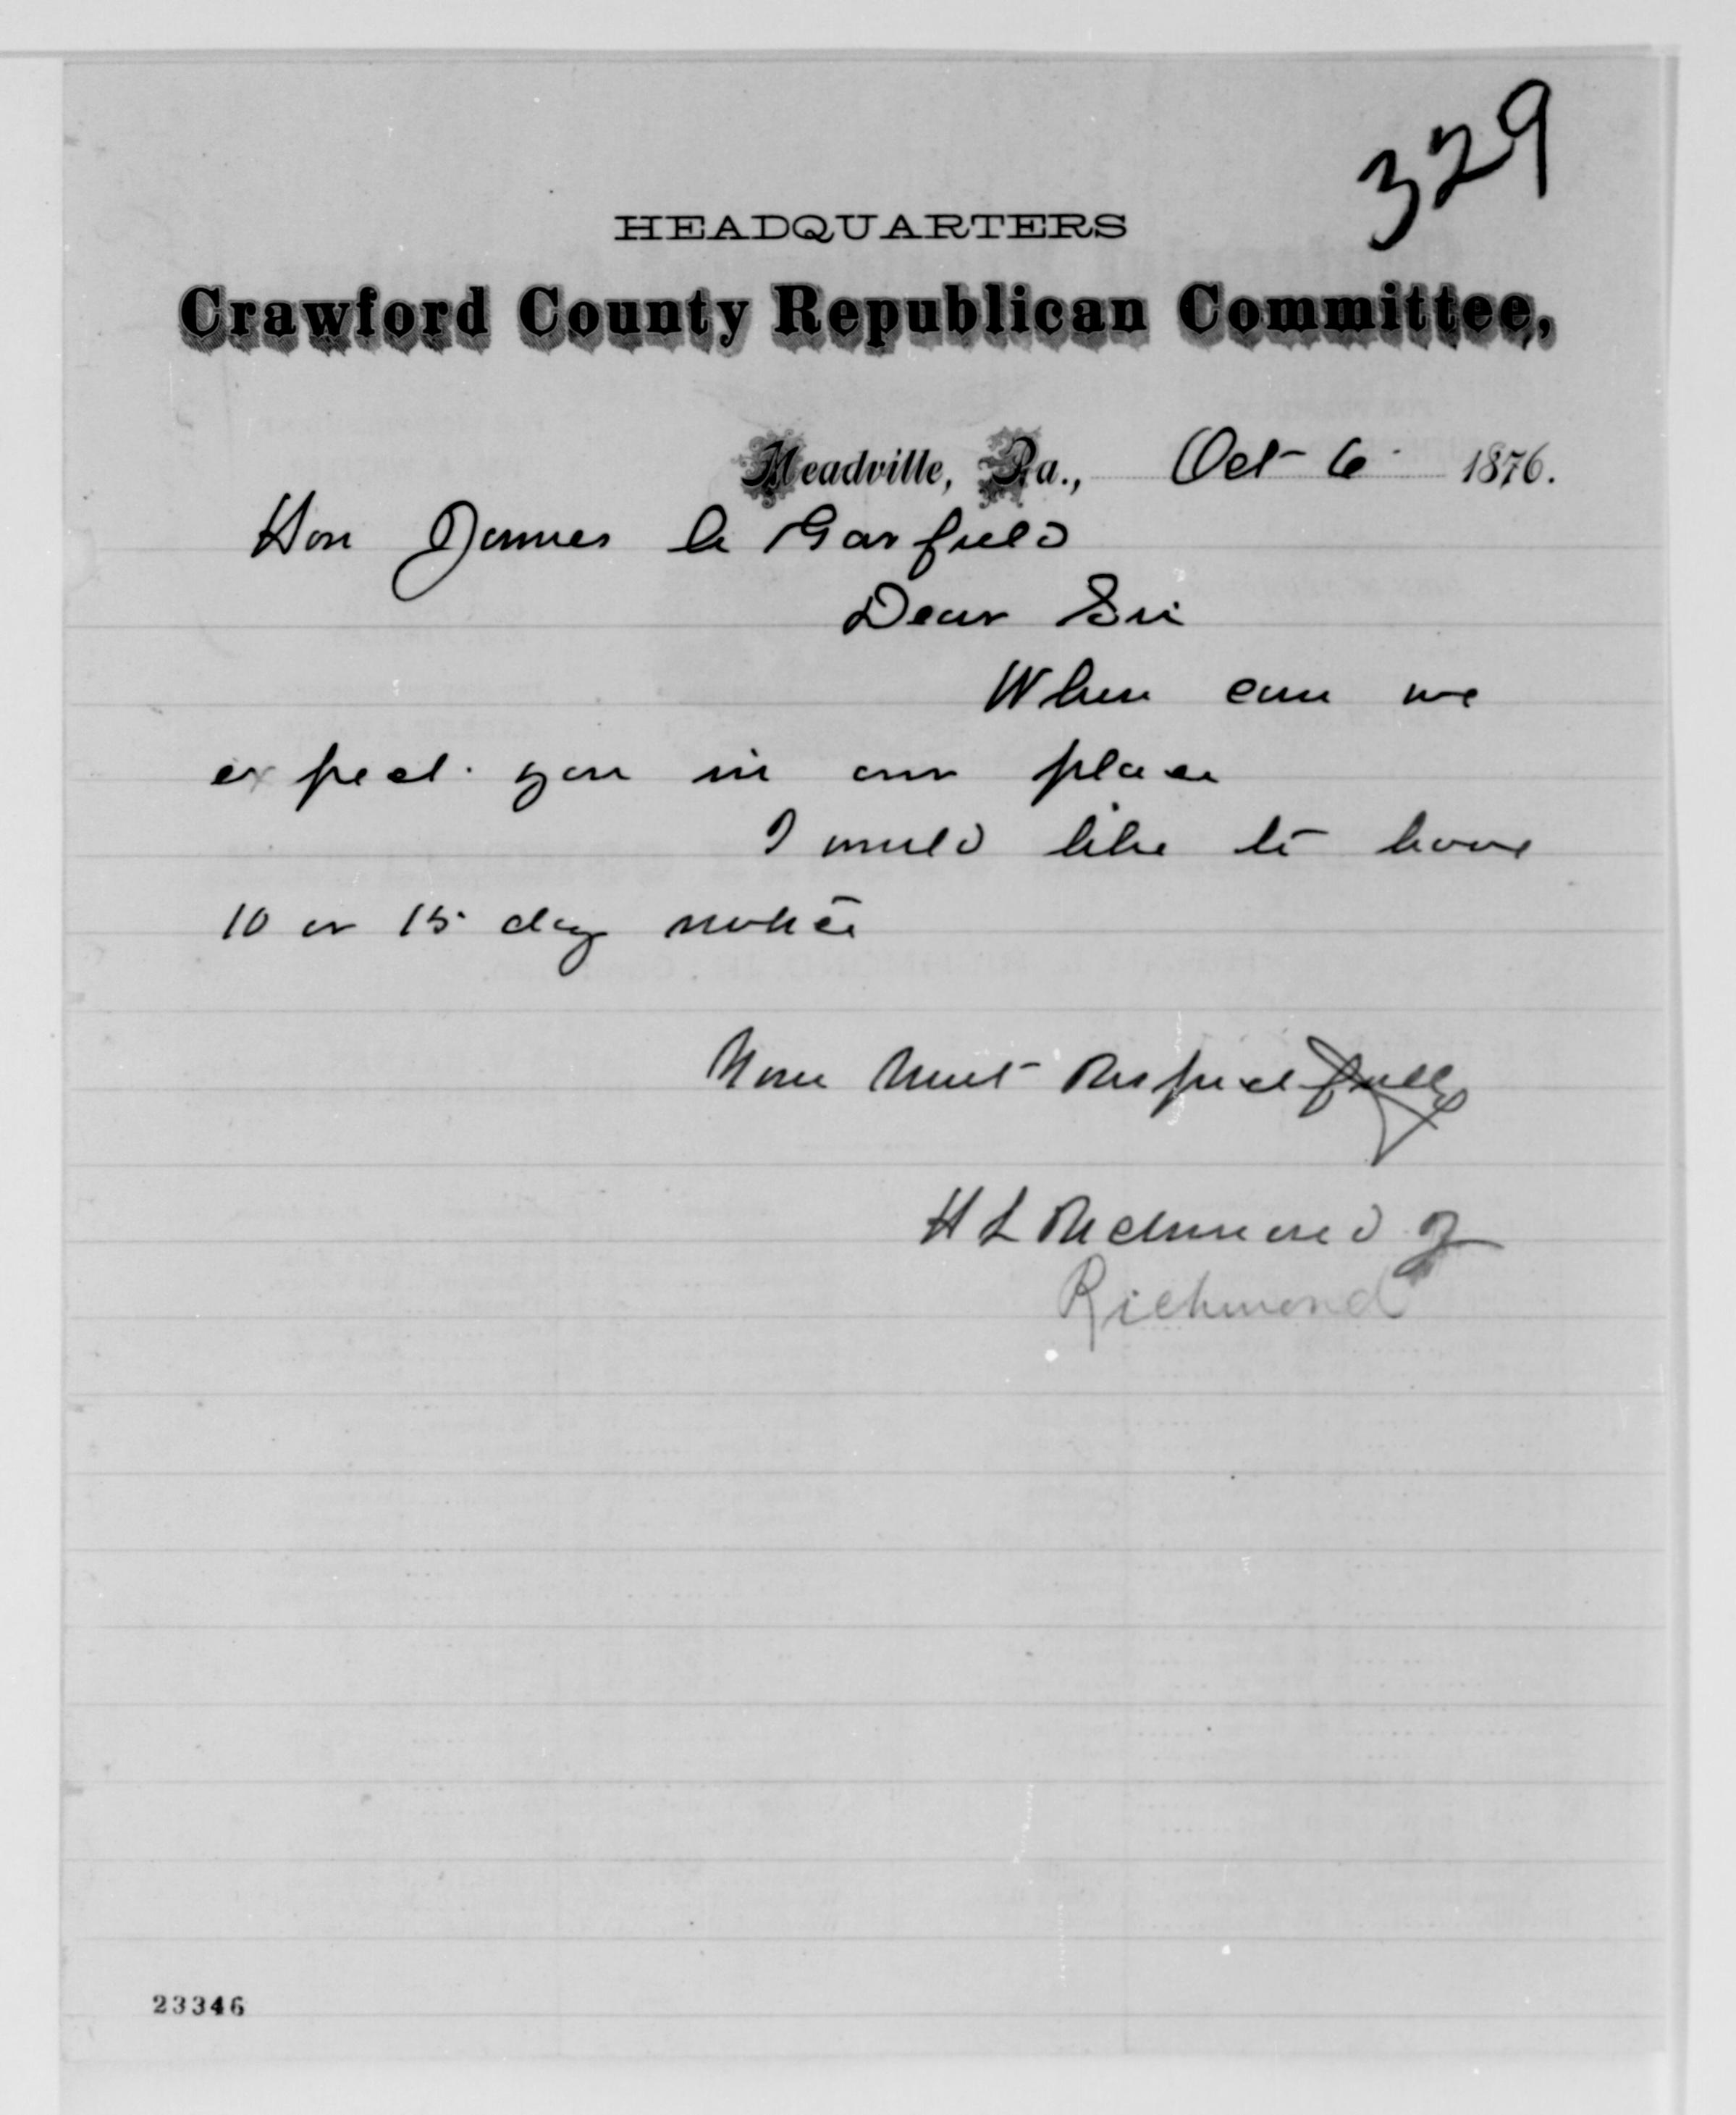 329
HEADQUARTERS
Crawford County Republican Committee,
Meadville, Pa., Oct 6 1876.
Hon James A Garfield
Dear Sir
When can we
expect you in our place
I would like to have
10 or 15 day notice
Yours Most Respectfully
H L Richmond Jr
Richmond
23346